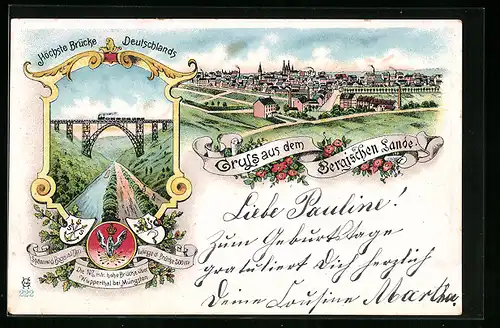 Höchste Brücke Deutschlands
Gruss aus dem
Bergischen Lande.
Die 107 mtr. hohe Brücke über
Wupperthal bei Müngsten
Liebe Pauline!
Zum Geburtstage
gratuliert Dich herzlich
Deine Cousine Martha.
222